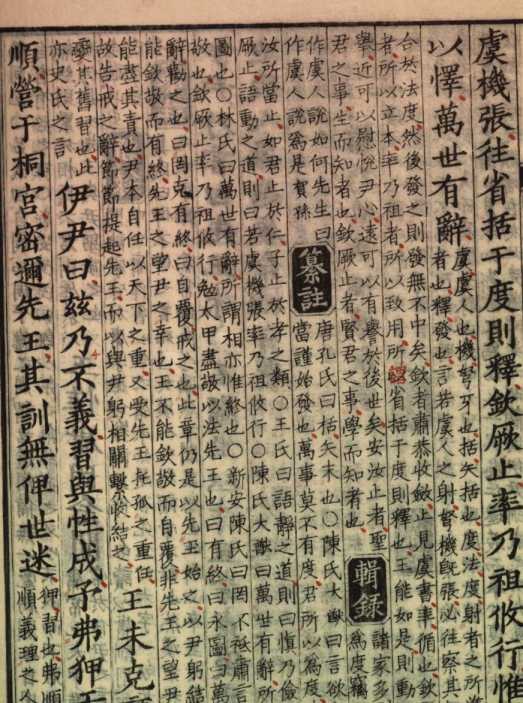 虞機張往省括于度則釋欽厥止率乃祖攸行惟
以懌萬世有辭
虞虞人也機弩牙也括矢括也度法度射者之所準
者也釋發也言若虞人之射弩機既張必往察其
合於法度然後發之則發無不中矣欽者肅恭收歛止見虞書率循也欽
者所以立本率乃祖者所以致用所謂省括于度則釋也王能如是則動
舉近可以慰悅尹心遠可以有譽於後世矣安汝止者聖
君之事生而知者也欽厥止者賢君之事學而知者也
輯錄
諸家多
為度竊
作虞人說如何先生曰
作虞人說為是賀孫
纂註
唐孔氏曰括矢末也○陳氏大猷曰言欲
當謹始發也萬事莫不有度君所以為度
汝所當止如君止於仁子止於孝之類○王氏曰語靜之道則曰慎乃儉
厥止語動之道則曰若虞機張率乃祖攸行○陳氏大猷曰萬世有辭所
圖也○林氏曰萬世有辭所謂相亦惟終也○新安陳氏曰罔不祗肅言
敬也欽厥止率乃祖攸行勉太甲盡敬以法先王也曰有終曰永圖曰萬
辭勸之也曰罔克有終曰自覆戒之也此章仍是以先王始之以尹躬結
能欽敬而有終先王之望尹之幸也王不能欽敬而自覆非先王之望尹
能盡其責也尹本自任以天下之重又受先王托孤之重任
故告戒之辭節節提起先王而以與尹躬相關繫收結之
王未克
變其舊習也此
亦史氏之言
伊尹曰兹乃不義習與性成予弗狎于
順營于桐宮密邇先王其訓無俾世迷
狎習也弗順
順義理之人